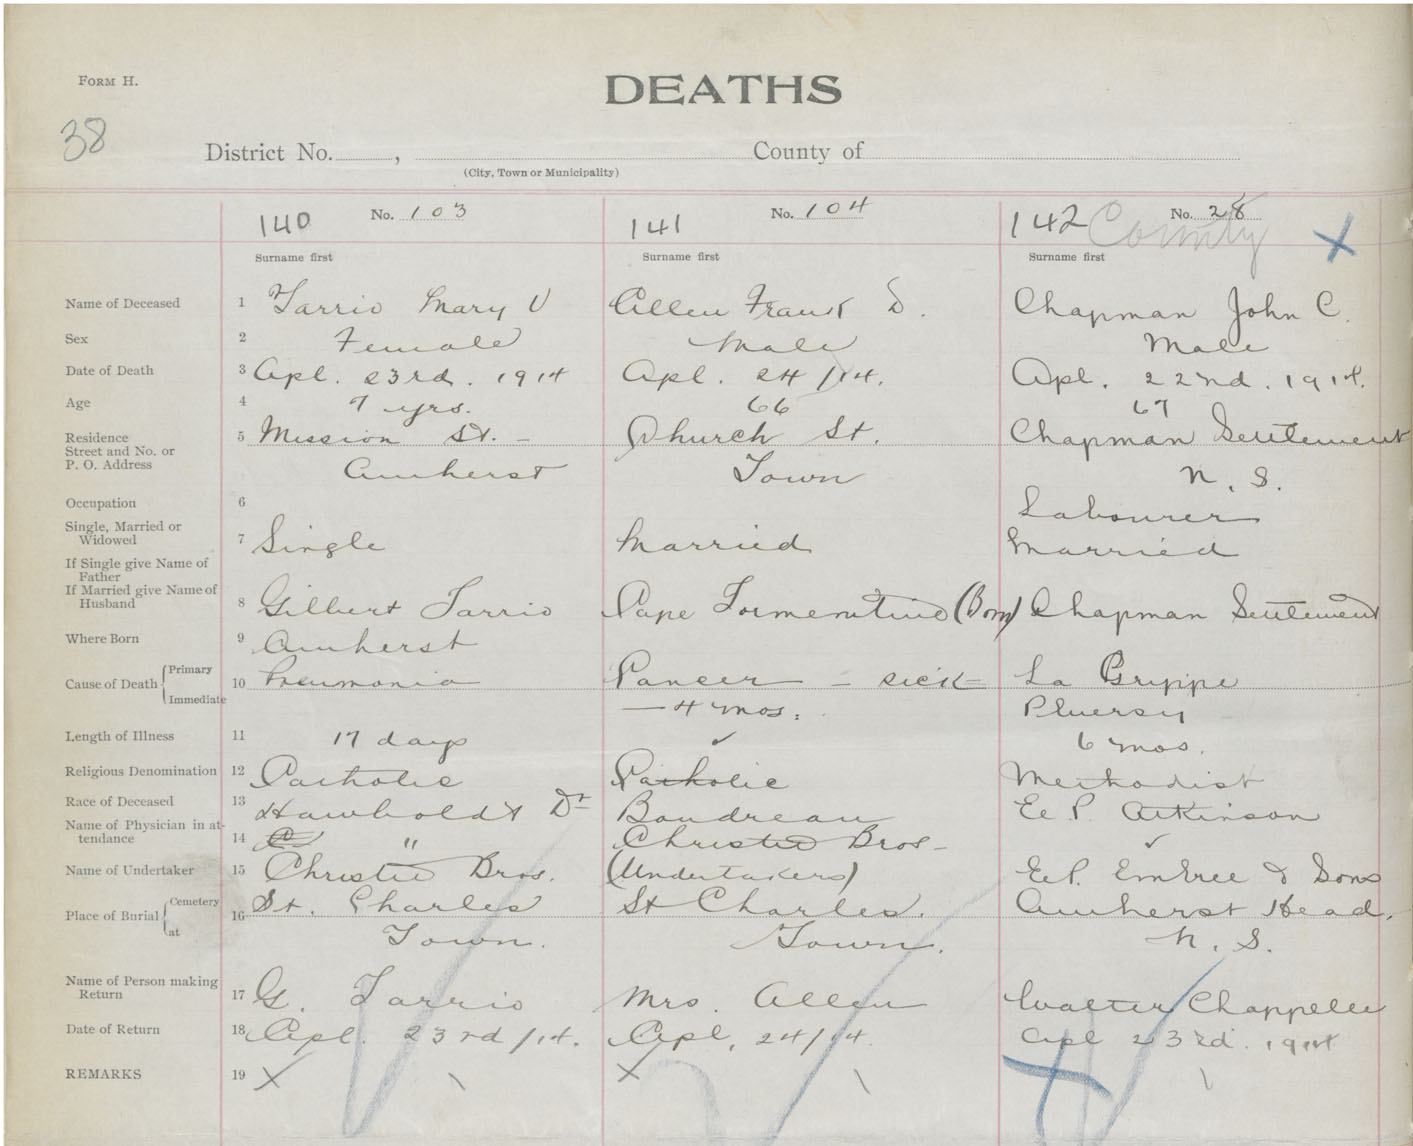 FORM H.
DEATHS
38
District No. , County of
(City, Town or Municipality)
140 No. 103 141 No. 104 142 County No. 28 X
Surname first Surname first Surname first
Name of Deceased 1 Tarrio Mary V Allen Frank D. Chapman John C.
Sex 2 Female Male Male
Date of Death 3 Apl. 23rd. 1914 Apl. 24/14. Apl. 22nd. 1914.
Age 4 7 yrs. 66 67
Residence 5 Mission St. - Church St. Chapman Settlement
Street and No. or
P. O. Address Amherst Town N. S.
Occupation 6 Labourer
Single, Married or
Widowed 7 Single Married Married
If Single give Name of
Father
If Married give Name of
Husband 8 Gilbert Tarrio Cape Tormentine (Born) Chapman Settlement
Where Born 9 Amherst
Cause of Death Primary 10 Pneumonia Cancer - sick - La Grippe
Immediate - 4 mos. Pluersy
Length of Illness 11 17 days ✓ 6 mos.
Religious Denomination 12 Catholic Catholic Methodist
Race of Deceased 13 Hawboldt Dr Boudreau E. P. Atkinson
Name of Physician in at-
tendance 14 " Christie Bros - ✓
Name of Undertaker 15 Christie Bros. (Undertakers) E.P. Embree & Sons
Place of Burial Cemetery 16 St. Charles St Charles. Amherst Head.
at Town. Town. N. S.
Name of Person making
Return 17 G. Tarrio Mrs. Allen Walter Chappelle
Date of Return 18 Apl. 23rd/14. Apl. 24/14. Apl 23rd. 1914
REMARKS 19 X \ X \ X \